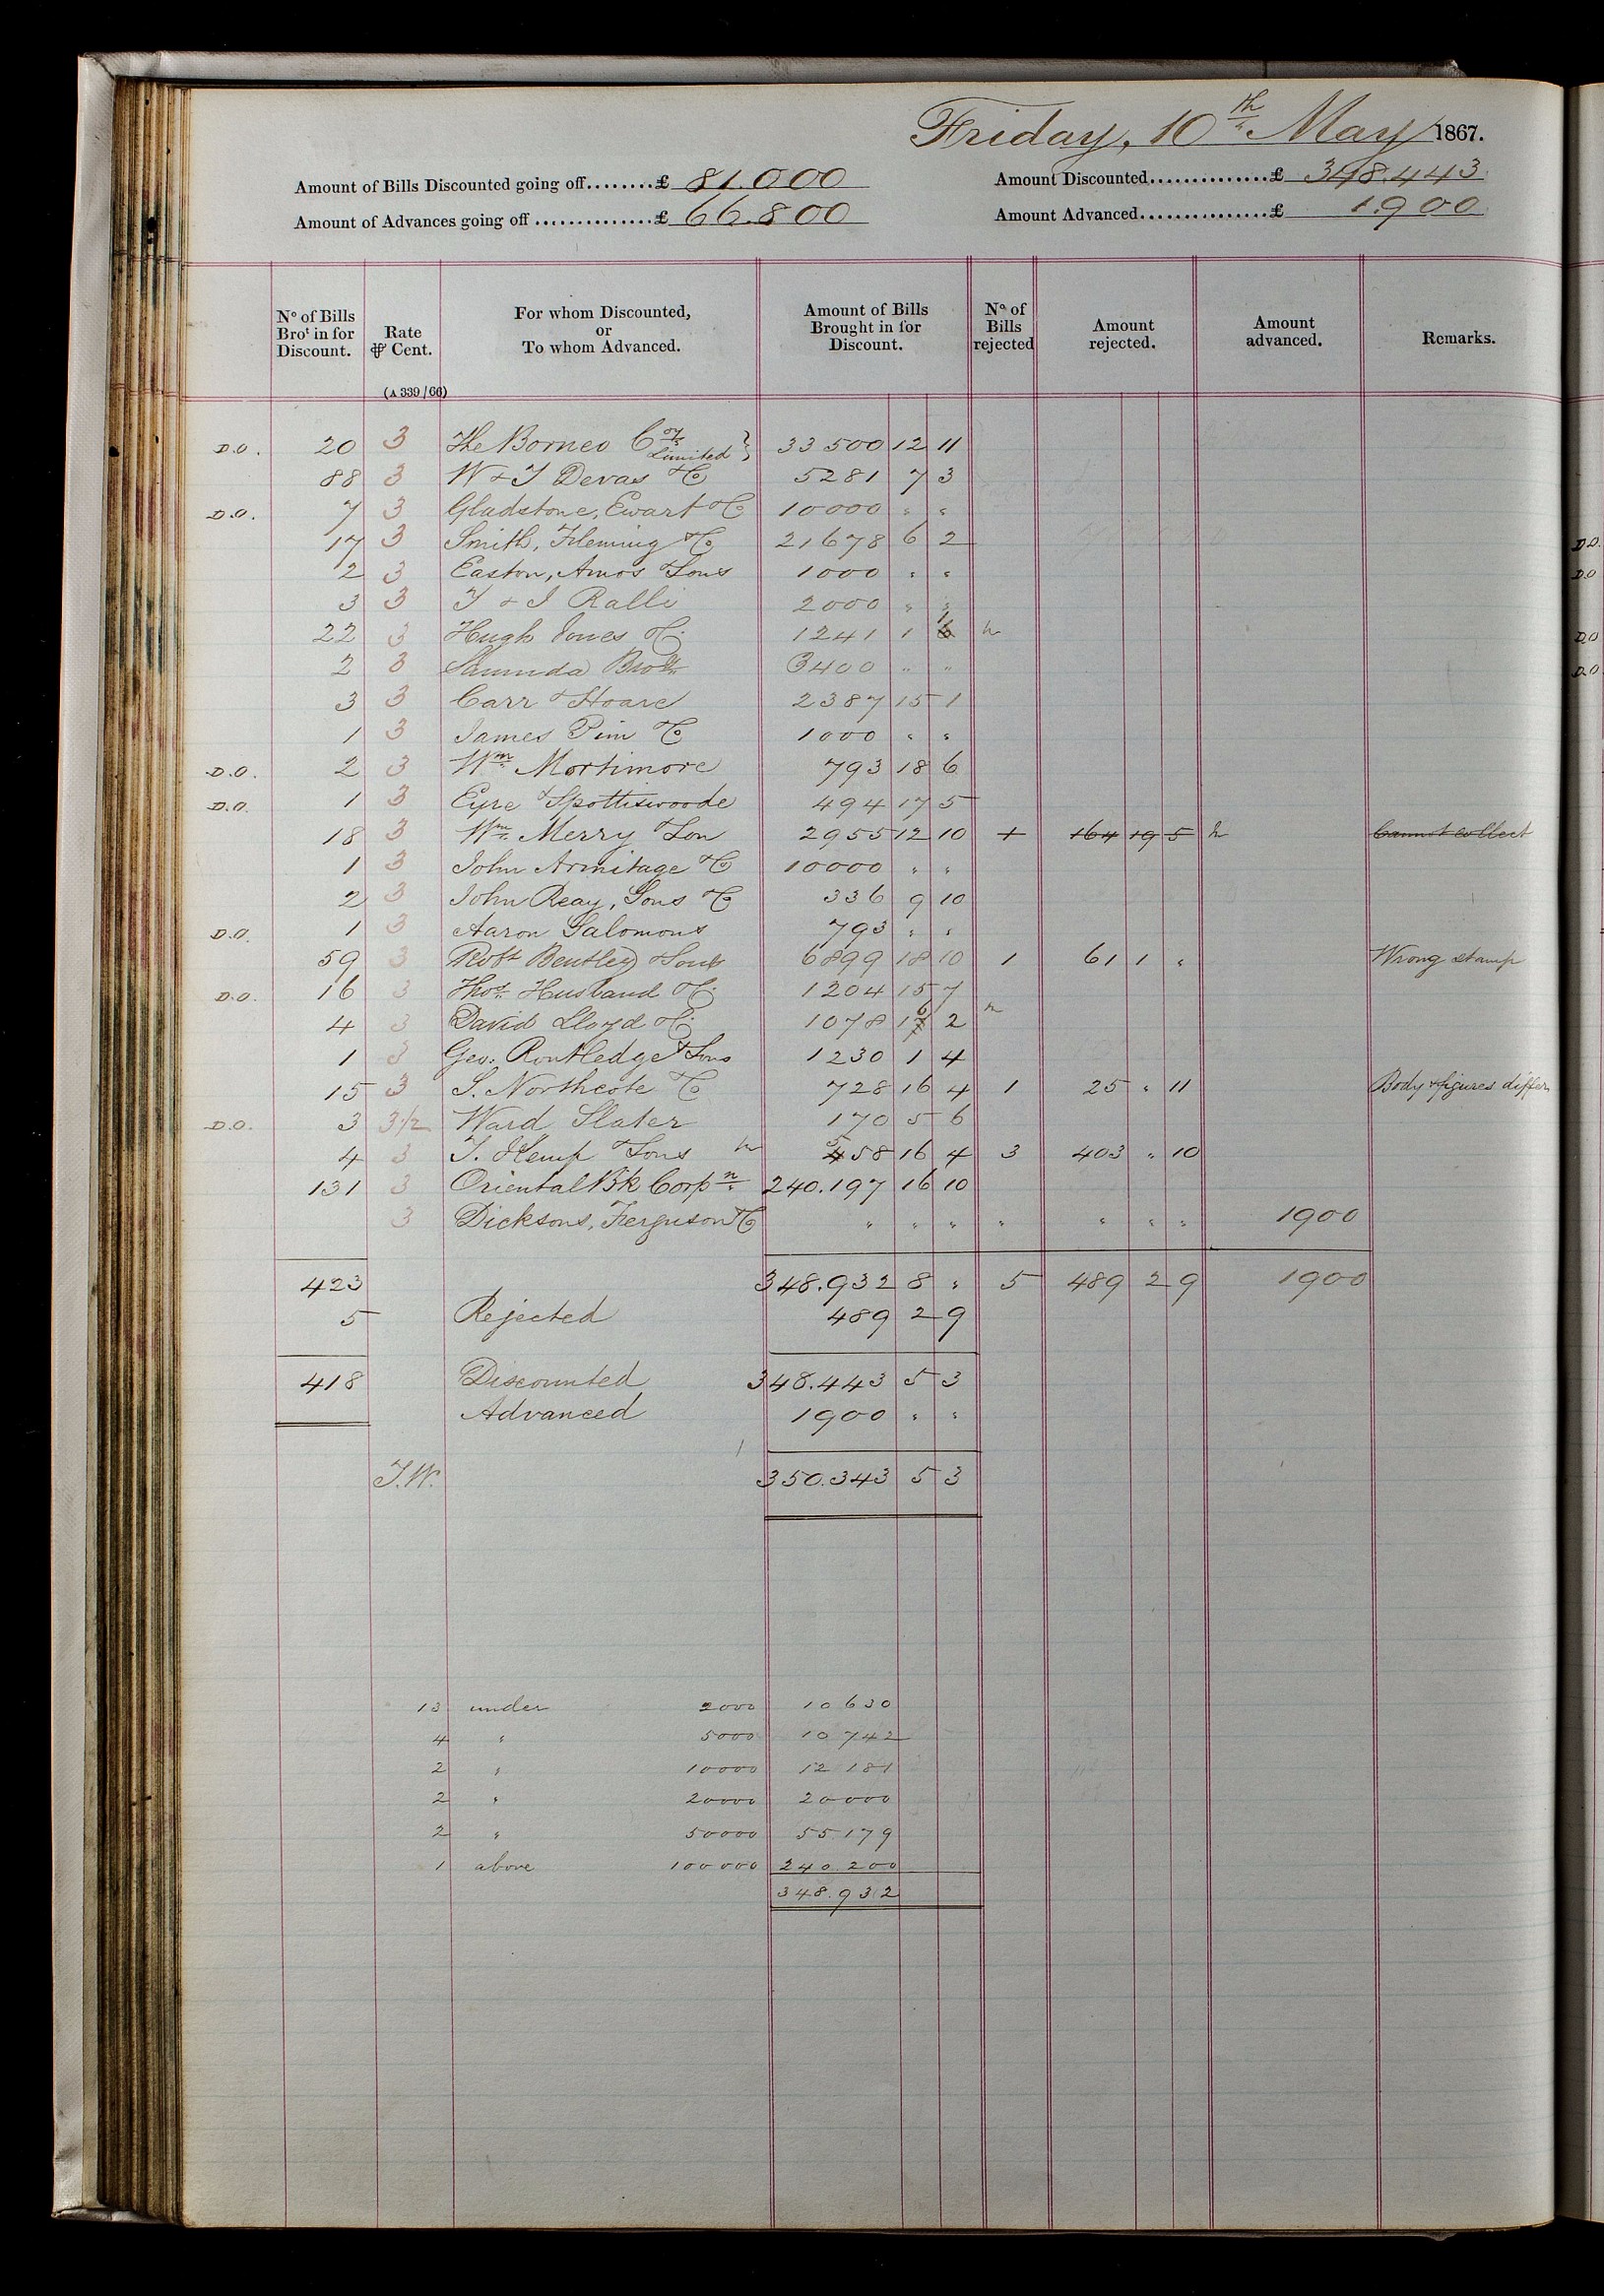 Friday, 10th May 1867.
Amount of Bills Discounted going off........£ 81.000 Amount Discounted..............£ 348.443
Amount of Advances going off..............£ 66.800 Amount Advanced...............£ 1.900
No of Bills Brot in for Discount. Rate ⅌ Cent. For whom Discounted, or To whom Advanced. Amount of Bills Brought in for Discount. No of Bills rejected Amount rejected. Amount advanced. Remarks.
(A 339/66)
D.O. 20 3 The Borneo Coy Limited } 33 500 12 11
88 3 W & T Devas & Co 5281 7 3
D.O. 7 3 Gladstone, Ewart & Co 10000 " "
17 3 Smith, Fleming & Co 21678 6 2
2 3 Easton, Amos & Sons 1000 " "
3 3 T & I Ralli 2000 " "
22 3 Hugh Jones & Co 1241 1 1
2 3 Brors 3400 " "
3 3 Carr & Hoare 2387 15 1
1 3 James Pim & Co 1000 " "
D.O. 2 3 Wm Mortimore 793 18 6
D.O. 1 3 Eyre & Spottiswoode 494 17 5
18 3 Wm Merry & Son 2955 12 10 1 164 19 5 Cannot collect
1 3 John Armitage & Co 10000 " "
2 3 John Reay, Sons & Co 336 9 10
D.O. 1 3 Aaron Salomons 793 " "
59 3 Robt Bentley & Sons 6899 18 10 1 61 1 " Wrong stamp
D.O. 16 3 Thos Husband & Co 1204 15 7
4 3 David Lloyd & Co 1078 16 2
1 3 Geo. Routledge & Sons 1230 1 4
15 3 S. Northcote & Co 728 16 4 1 25 " 11 Body & figures differ
D.O. 3 3½ Ward Slater 170 5 6
4 3 T. Kemp & Sons 558 16 4 3 403 " 10
131 3 Oriental Bk Corpn 240.197 16 10
3 Dicksons, Ferguson & Co " " " " " " " 1900
423 348.932 8 " 5 489 2 9 1900
5 Rejected 489 2 9
418 Discounted 348.443 5 3
Advanced 1900 " "
T.W. 350.343 5 3
13 under 2000 10 630
4 " 5000 10 742
2 " 10000 12 181
2 " 20000 20000
2 " 50000 55 179
1 above 100000 240.200
348.932
D.O.
D.O
D.O
D.O